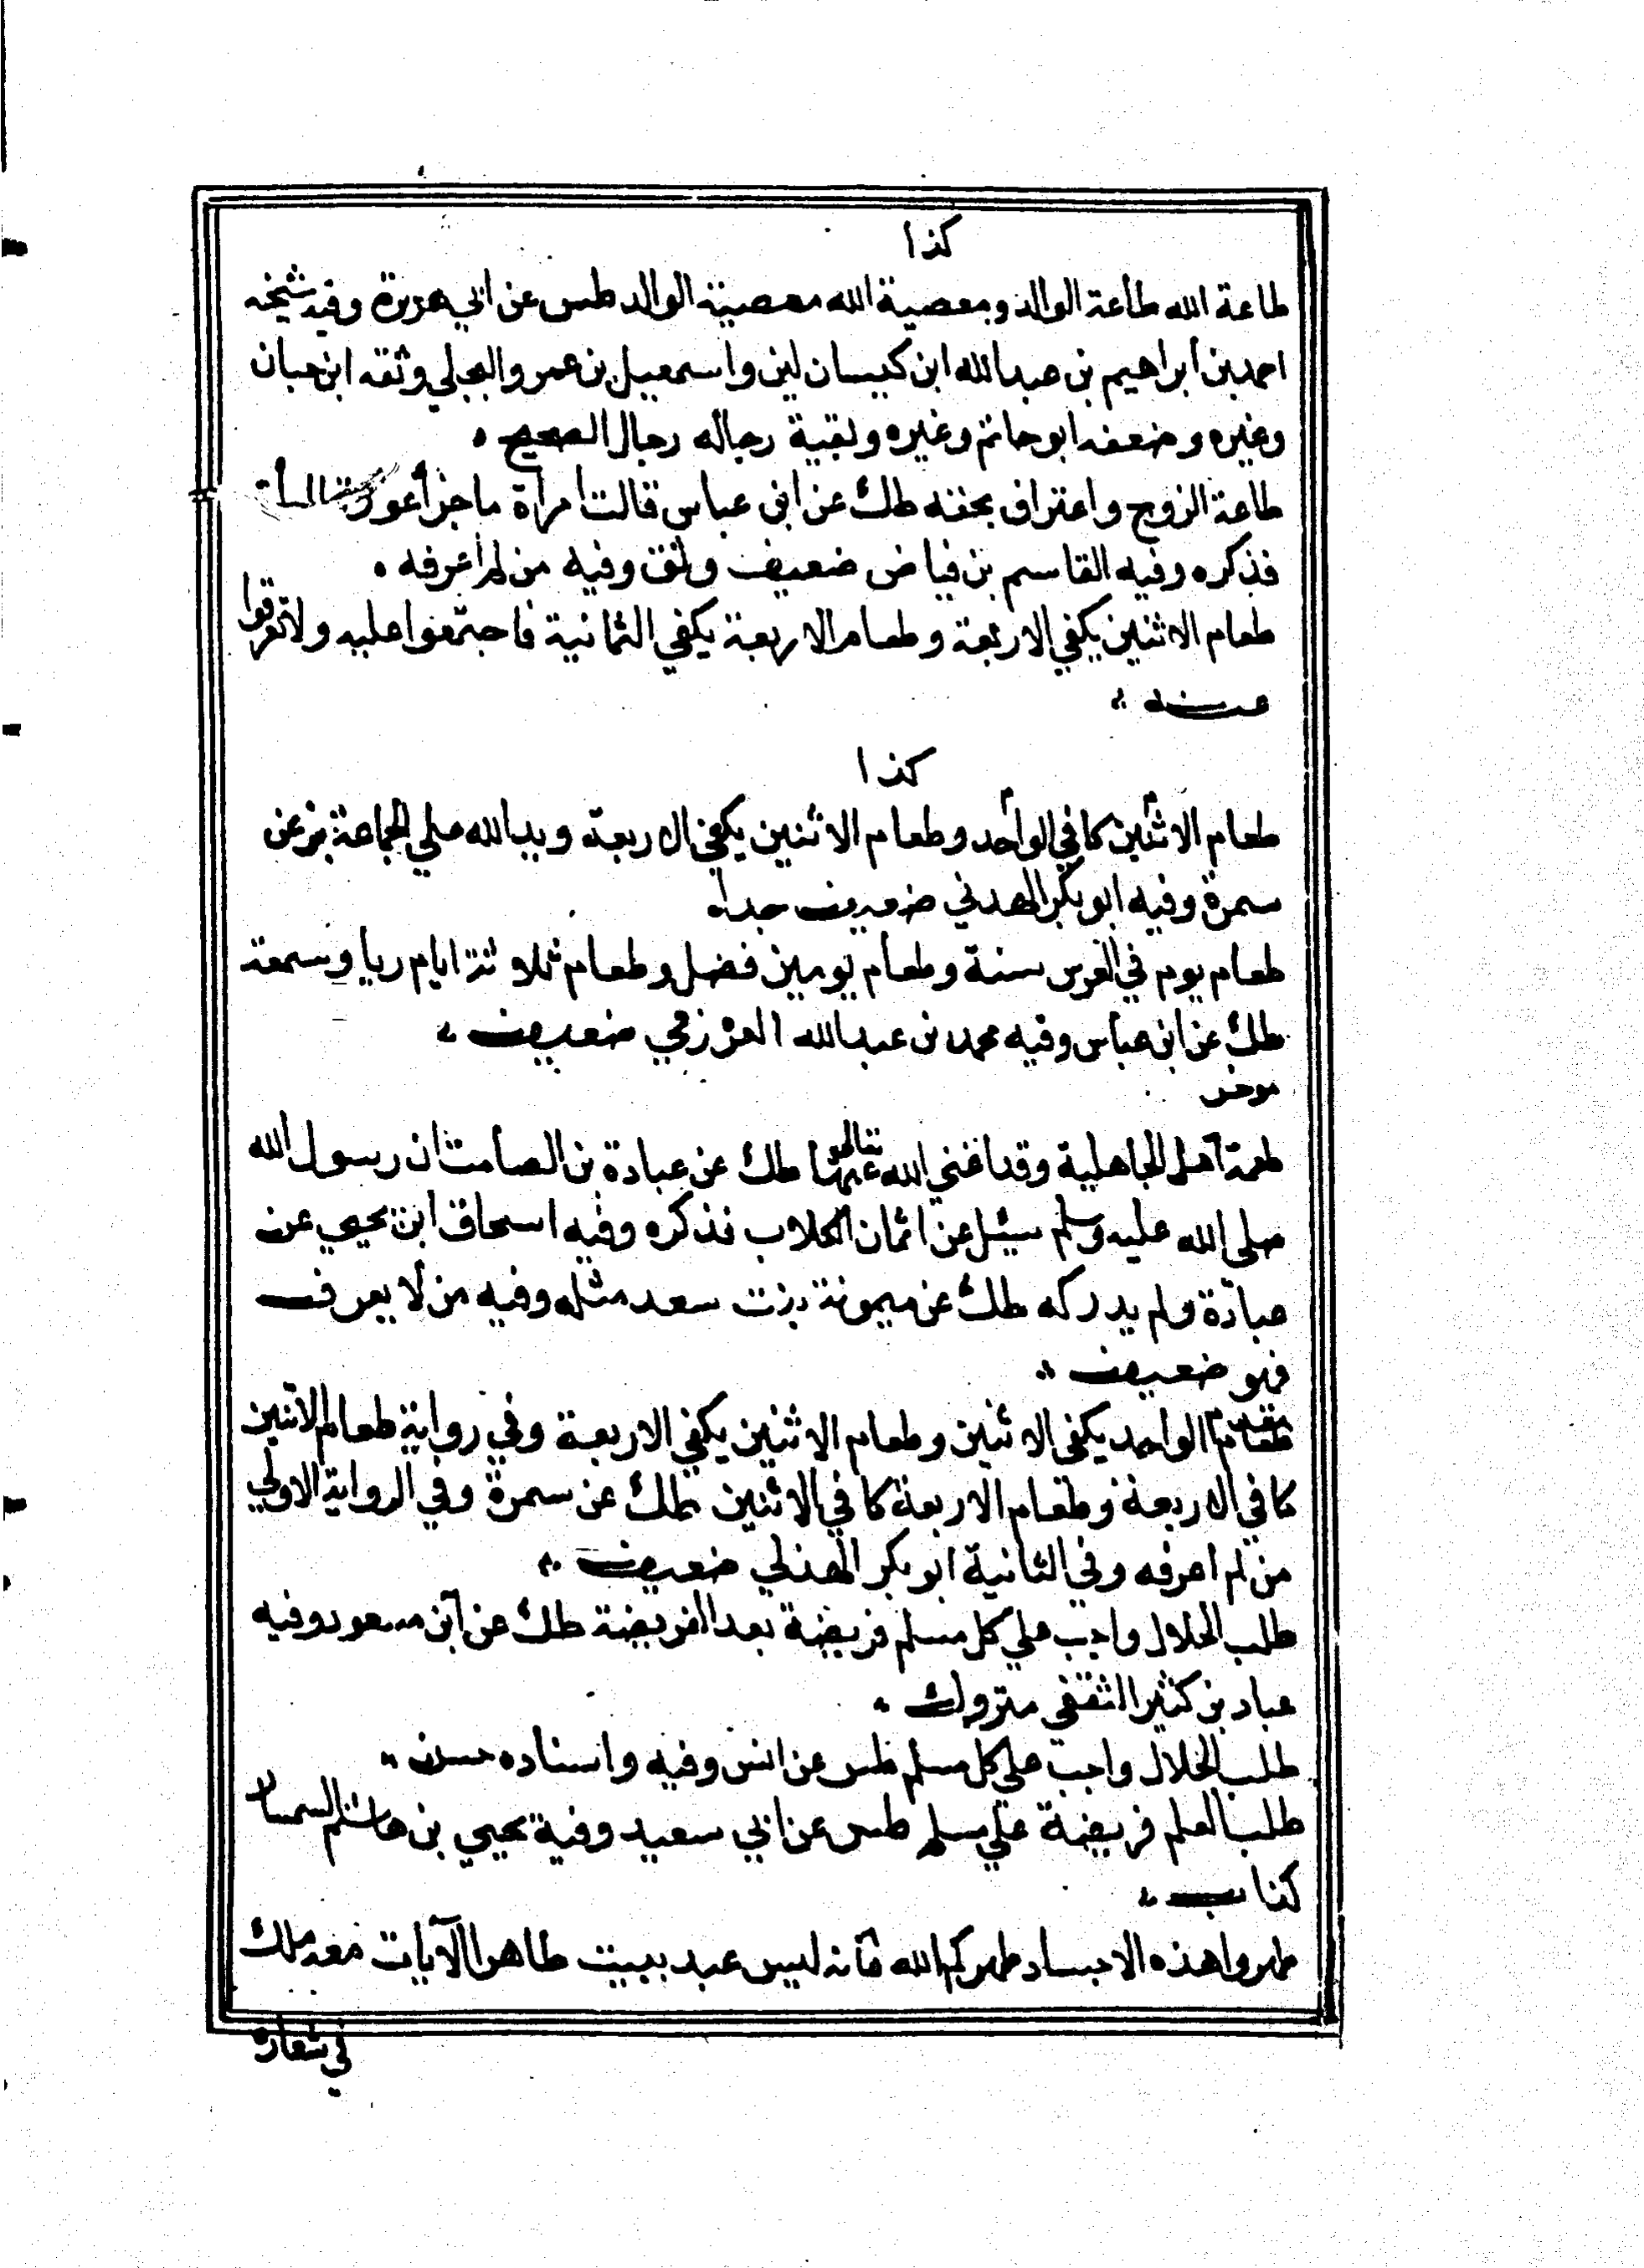 كذا
طاعة الله طاعة الوالد ومعصية الله معصية الوالد طس عن ابي هريرة وفيه شيخه
احمد بن ابراهيم بن عبد الله ابن كيسان لين واسمعيل بن عمرو البجلي وثقه ابن حبان
وغيره وضعفه ابو حاتم وغيره وبقية رجاله رجال الصحيح
طاعة الزوج واعتراف بحقه طك عن ابن عباس قالت امرأة ما جزأ
فذكره وفيه القاسم بن فياض ضعيف وثق وفيه من لم اعرفه
طعام الاثنين يكفي الاربعة وطعام الاربعة يكفي الثمانية فاجتمعوا عليه ولا تفرقوا
عنه
كذا
طعام الاثنين كافي الواحد وطعام الاثنين يكفي الاربعة ويد الله علي الجماعة بز عن
سمرة وفيه ابو بكر الهدني ضعيف جدا
طعام يوم في العرس سنة وطعام يومين فضل وطعام ثلاوثة ايام ريا وسمعة
طك عن ابن عباس وفيه محمد بن عبد الله العرزمي ضعيف
موخر
طعمة اهل الجاهلية وقد اغني الله تعالي عنها طك عن عبادة بن الصامت ان رسول الله
صلى الله عليه وسلم سيئل عن اثمان الكلاب فذكره وفيه اسحاق ابن يحيي عن
عبادة ولم يدركه طك عن ميمونة بنت سعد مثله وفيه من لا يعرف
فهو ضعيف
مقدم
طعام الواحد يكفى الاثنين وطعام الاثنين يكفي الاربعة وفي رواية طعام الاثنين
كافي الاربعة وطعام الاربعة كافي الاثنين طك عن سمرة وفي الرواية الاولي
من لم اعرفه وفي الثانية ابو بكر الهذلي ضعيف
طلب الحلال واجب علي كل مسلم فريضة بعد الفريضة طك عن ابن مسعود وفيه
عباد بن كثير الثقفي متروك
طلب الحلال واجب علي كل مسلم طس عن انس وفيه واسناده حسن
طلب العلم فريضة علي مسلم طس عن ابي سعيد وفية يحيي بن هاشم السمسار
كذاب
طهروا هذه الاجساد طهركم الله فانه ليس عبد يبيت طاهرا الايات معه ملك
في شعاره